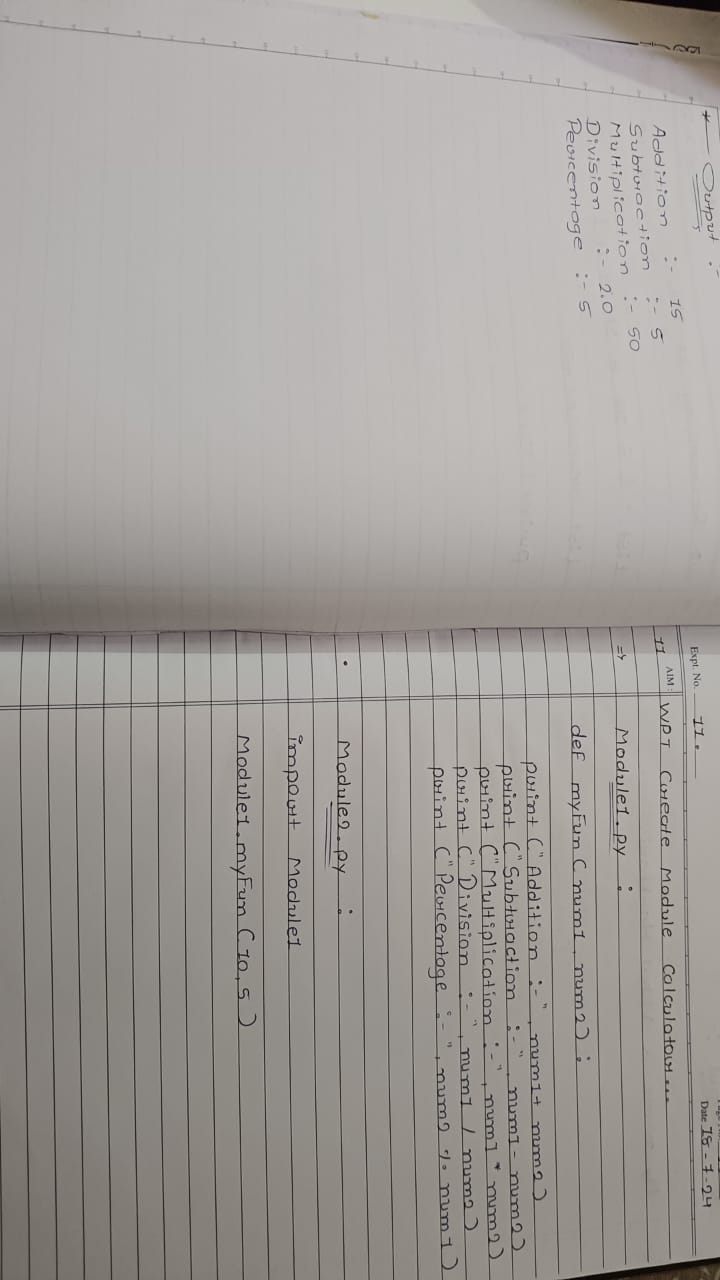 * Output :-
Addition :- 15
Subtraction :- 5
Multiplication :- 50
Division :- 2.0
Percentage :- 5
Expt. No. 11.
Date 18-7-24
11 AIM : WPT Create Module Calculator...
=> Module1.py :
def myFun(num1, num2) :
print("Addition :-", num1+ num2)
print("Subtraction :-", num1- num2)
print("Multiplication :-", num1 * num2)
print("Division :-", num1 / num2)
print("Percentage :-", num2 % num1)
• Module2.py :
import Module1
Module1.myFun(10,5)